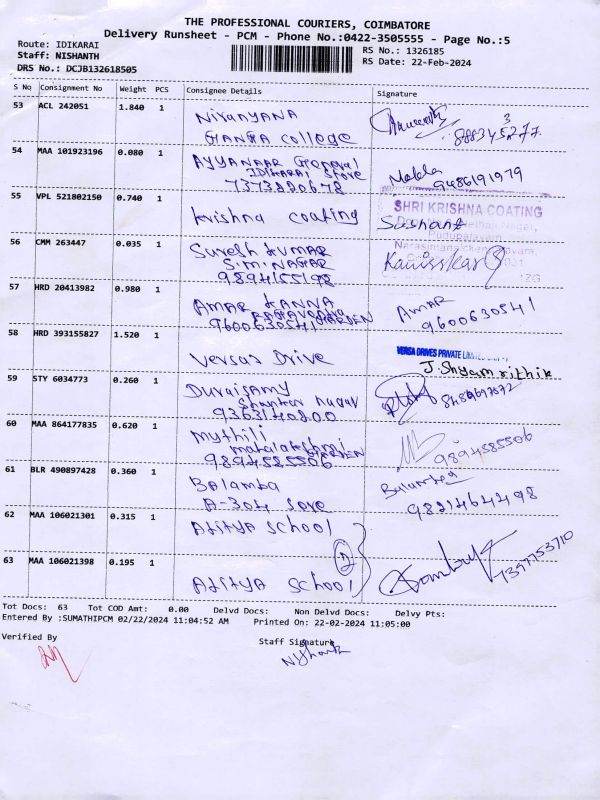 THE PROFESSIONAL COURIERS, COIMBATORE
Delivery Runsheet - PCM - Phone No.:0422-3505555 - Page No.:5
Route: IDIKARAI
RS No.: 1326185
Staff: NISHANTH
RS Date: 22-Feb-2024
DRS No.: DCJB132618505
S No Consignment No Weight PCS Consignee Details Signature
53 ACL 242051 1.840 1
GANGA College
54 MAA 101923196 0.080 1 AYYANAAR General
IDIKARAI Store
7373820678
9486191979
55 VPL 521802150 0.740 1 krishna coating
SHRI KRISHNA COATING
Sushant
56 CMM 263447 0.035 1 Suresh kumar
S.M. NAGAR
9894155198
57 HRD 20413982 0.980 1 AMAR KANNA
GARDEN
9600630541
AMAR
9600630541
58 HRD 393155827 1.520 1 Versas Drive
VERSA DRIVES PRIVATE
J. Shyam rithik
59 STY 6034773 0.260 1 Duraisamy
Shankar nagar
9363140800
60 MAA 864177835 0.620 1 Mythili
mahalakshmi GARDEN
9894585506
9894585506
61 BLR 490897428 0.360 1 Balamba
A-304 Sore
9821464498
62 MAA 106021301 0.315 1 Aditya School
63 MAA 106021398 0.195 1 Aditya School
2
7397753710
Tot Docs: 63 Tot COD Amt: 0.00 Delvd Docs: Non Delvd Docs: Delvy Pts:
Entered By :SUMATHIPCM 02/22/2024 11:04:52 AM Printed On: 22-02-2024 11:05:00
Verified By
Staff Signature